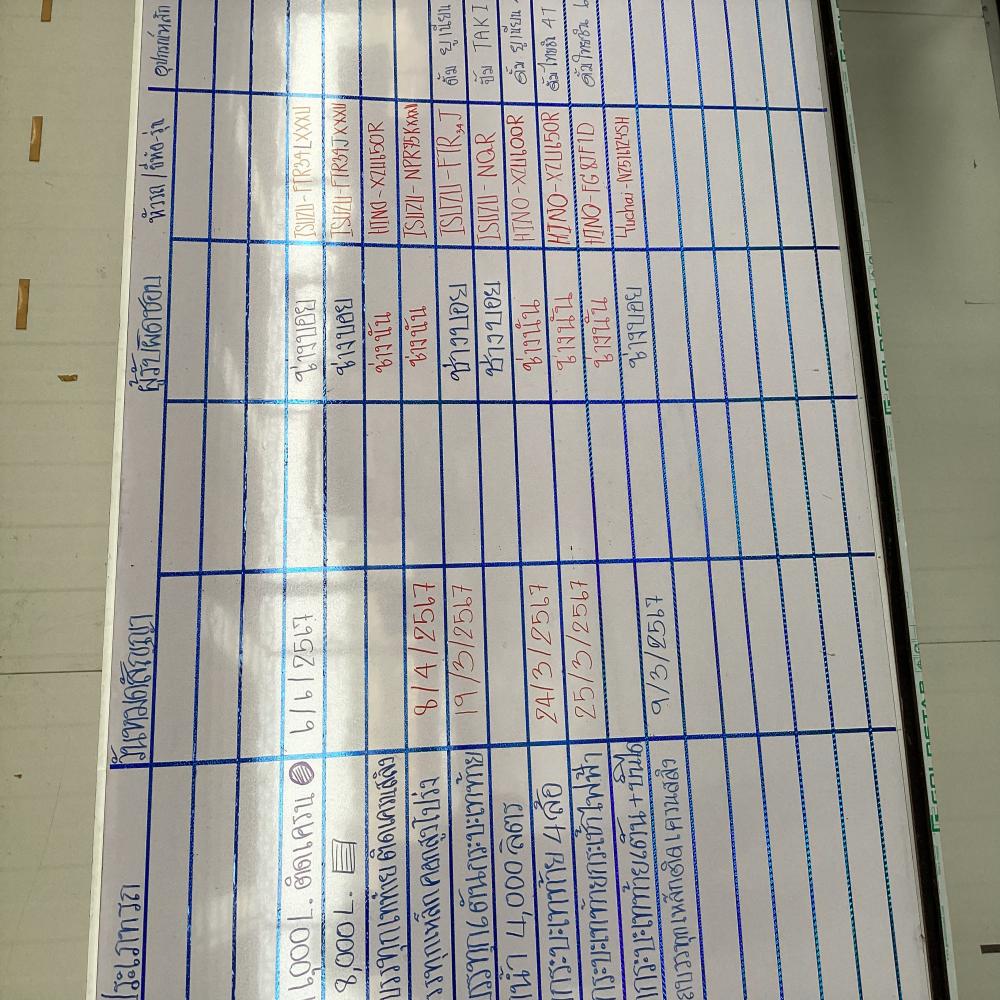 ประเภทรถ วันหมดสัญญา ผู้รับผิดชอบ หัวรถ/ยี่ห้อ-รุ่น อุปกรณ์หลัก
6,000 L. ติดเครน 6/6/2567 ช่างบอย ISUZU-FTR34LXXXU
8,000 L. ช่างบอย ISUZU-FTR34JXXXU
บรรทุกเทท้ายติดเครนสลิง ช่างนัน HINO-XZU650R
รรทุกเหล็กคอกสูงโปร่ง 8/4/2567 ช่างนัน ISUZU-NPR75KXXXU
บรรทุกดั้นกระบะเทท้าย 19/3/2567 ช่างบอย ISUZU-FTR34J ดั๊ม ยูเนี่ยน
กน้ำ 4,000 ลิตร ช่างบอย ISUZU-NQR ปั๊ม TAKI
กกระบะเทท้าย 4 ล้อ 24/3/2567 ช่างนัน HINO-XZU600R ดั๊ม ยูเนี่ยน
กระบะเทท้ายกระเช้าไฟฟ้า 25/3/2567 ช่างนัน HINO-XZU650R ดั๊มไทยชิน 4T
กกระบะเทท้ายเดี่ยว+ปานด ช่างนัน HINO-FG8JF1D ดั๊มไทยชิน
ถบรรทุกเหล็กติดเครนสลิง 9/3/2567 ช่างบอย Yuchai-NZ511Z4SH